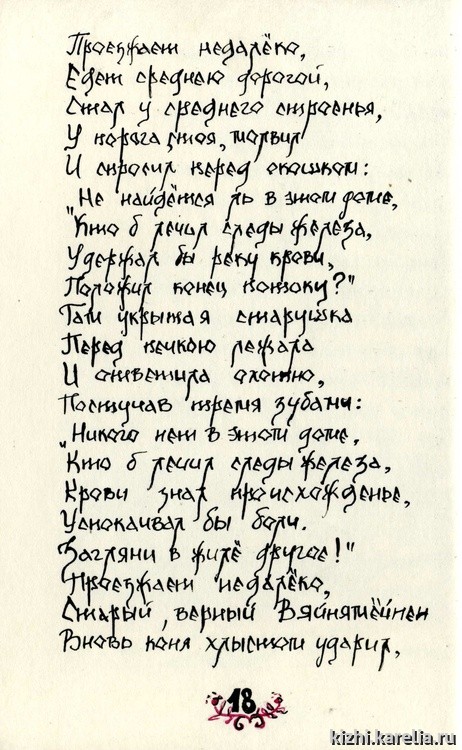 Проезжает недалёко,
Едет среднею дорогой,
Стал у среднего строенья,
У порога стоя, молвил
И спросил перед окошком:
"Не найдётся ль в этом доме,
Кто б лечил следы железа,
Удержал бы реку крови,
Положил конец потоку?"
Там укрытая старушка
Перед печкою лежала
И ответила охотно,
Постучав тремя зубами:
"Никого нет в этом доме,
Кто б лечил следы железа,
Крови знал происхожденье,
Успокаивал бы боли.
Загляни в жильё другое!"
Проезжает недалёко,
Старый, верный Вяйнямёйнен
Вновь коня хлыстом ударил,
18
kizhi.karelia.ru